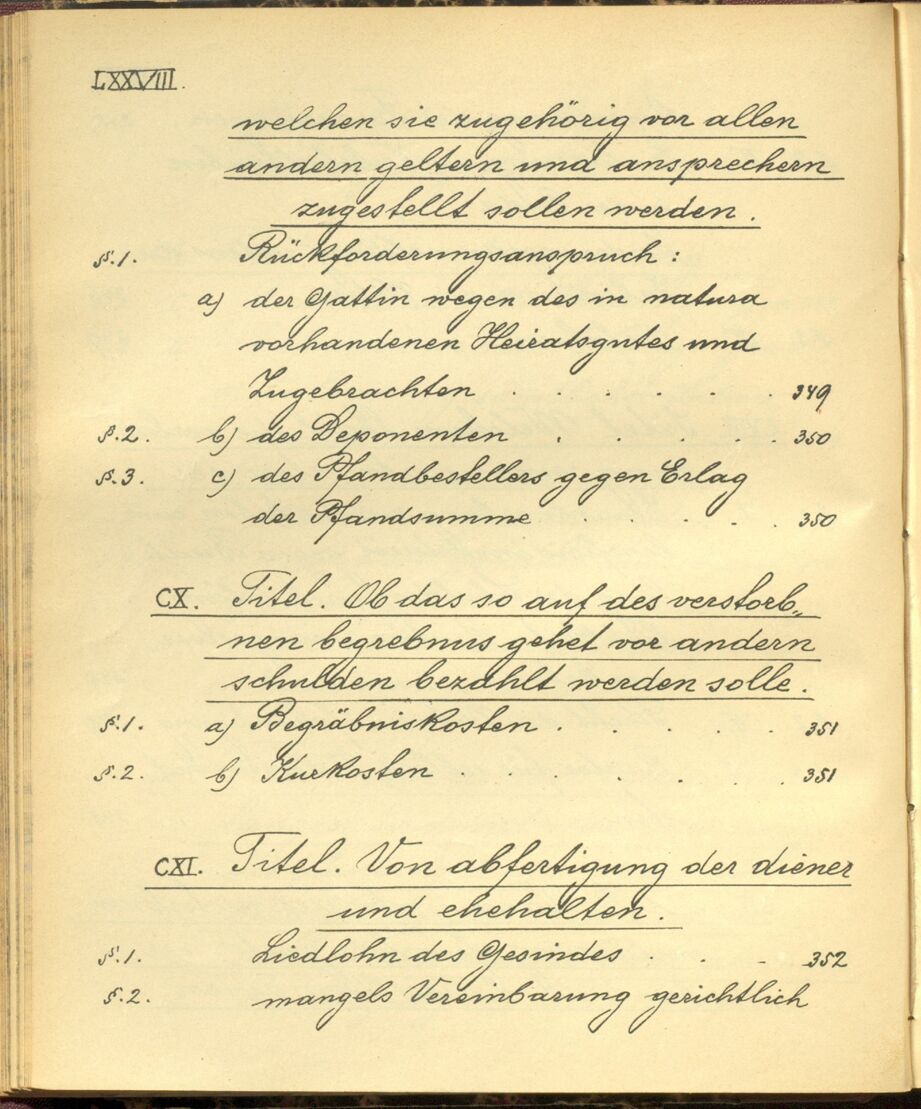 LXXVIII.
welchen sie zugehörig vor allen
andern geltern und ansprechern
zugestellt sollen werden.
§.1. Rückforderungsanspruch:
a) der Gattin wegen des in natura
vorhandenen Heiratsgutes und
Zugebrachten . . . . . . 349
§.2. b) des Deponenten . . . . . 350
§.3. c) des Pfandbestellers gegen Erlag
der Pfandsumme . . . . . 350
CX. Titel. Ob das so auf des verstorb„
nen begrebnus gehet vor andern
schulden bezahlt werden solle.
§.1. a) Begräbniskosten . . . . . 351
§.2. b) Kurkosten . . . . . 351
CXI. Titel. Von abfertigung der diener
und ehehalten.
§.1. Liedlohn des Gesindes . . . 352
§.2. mangels Vereinbarung gerichtlich